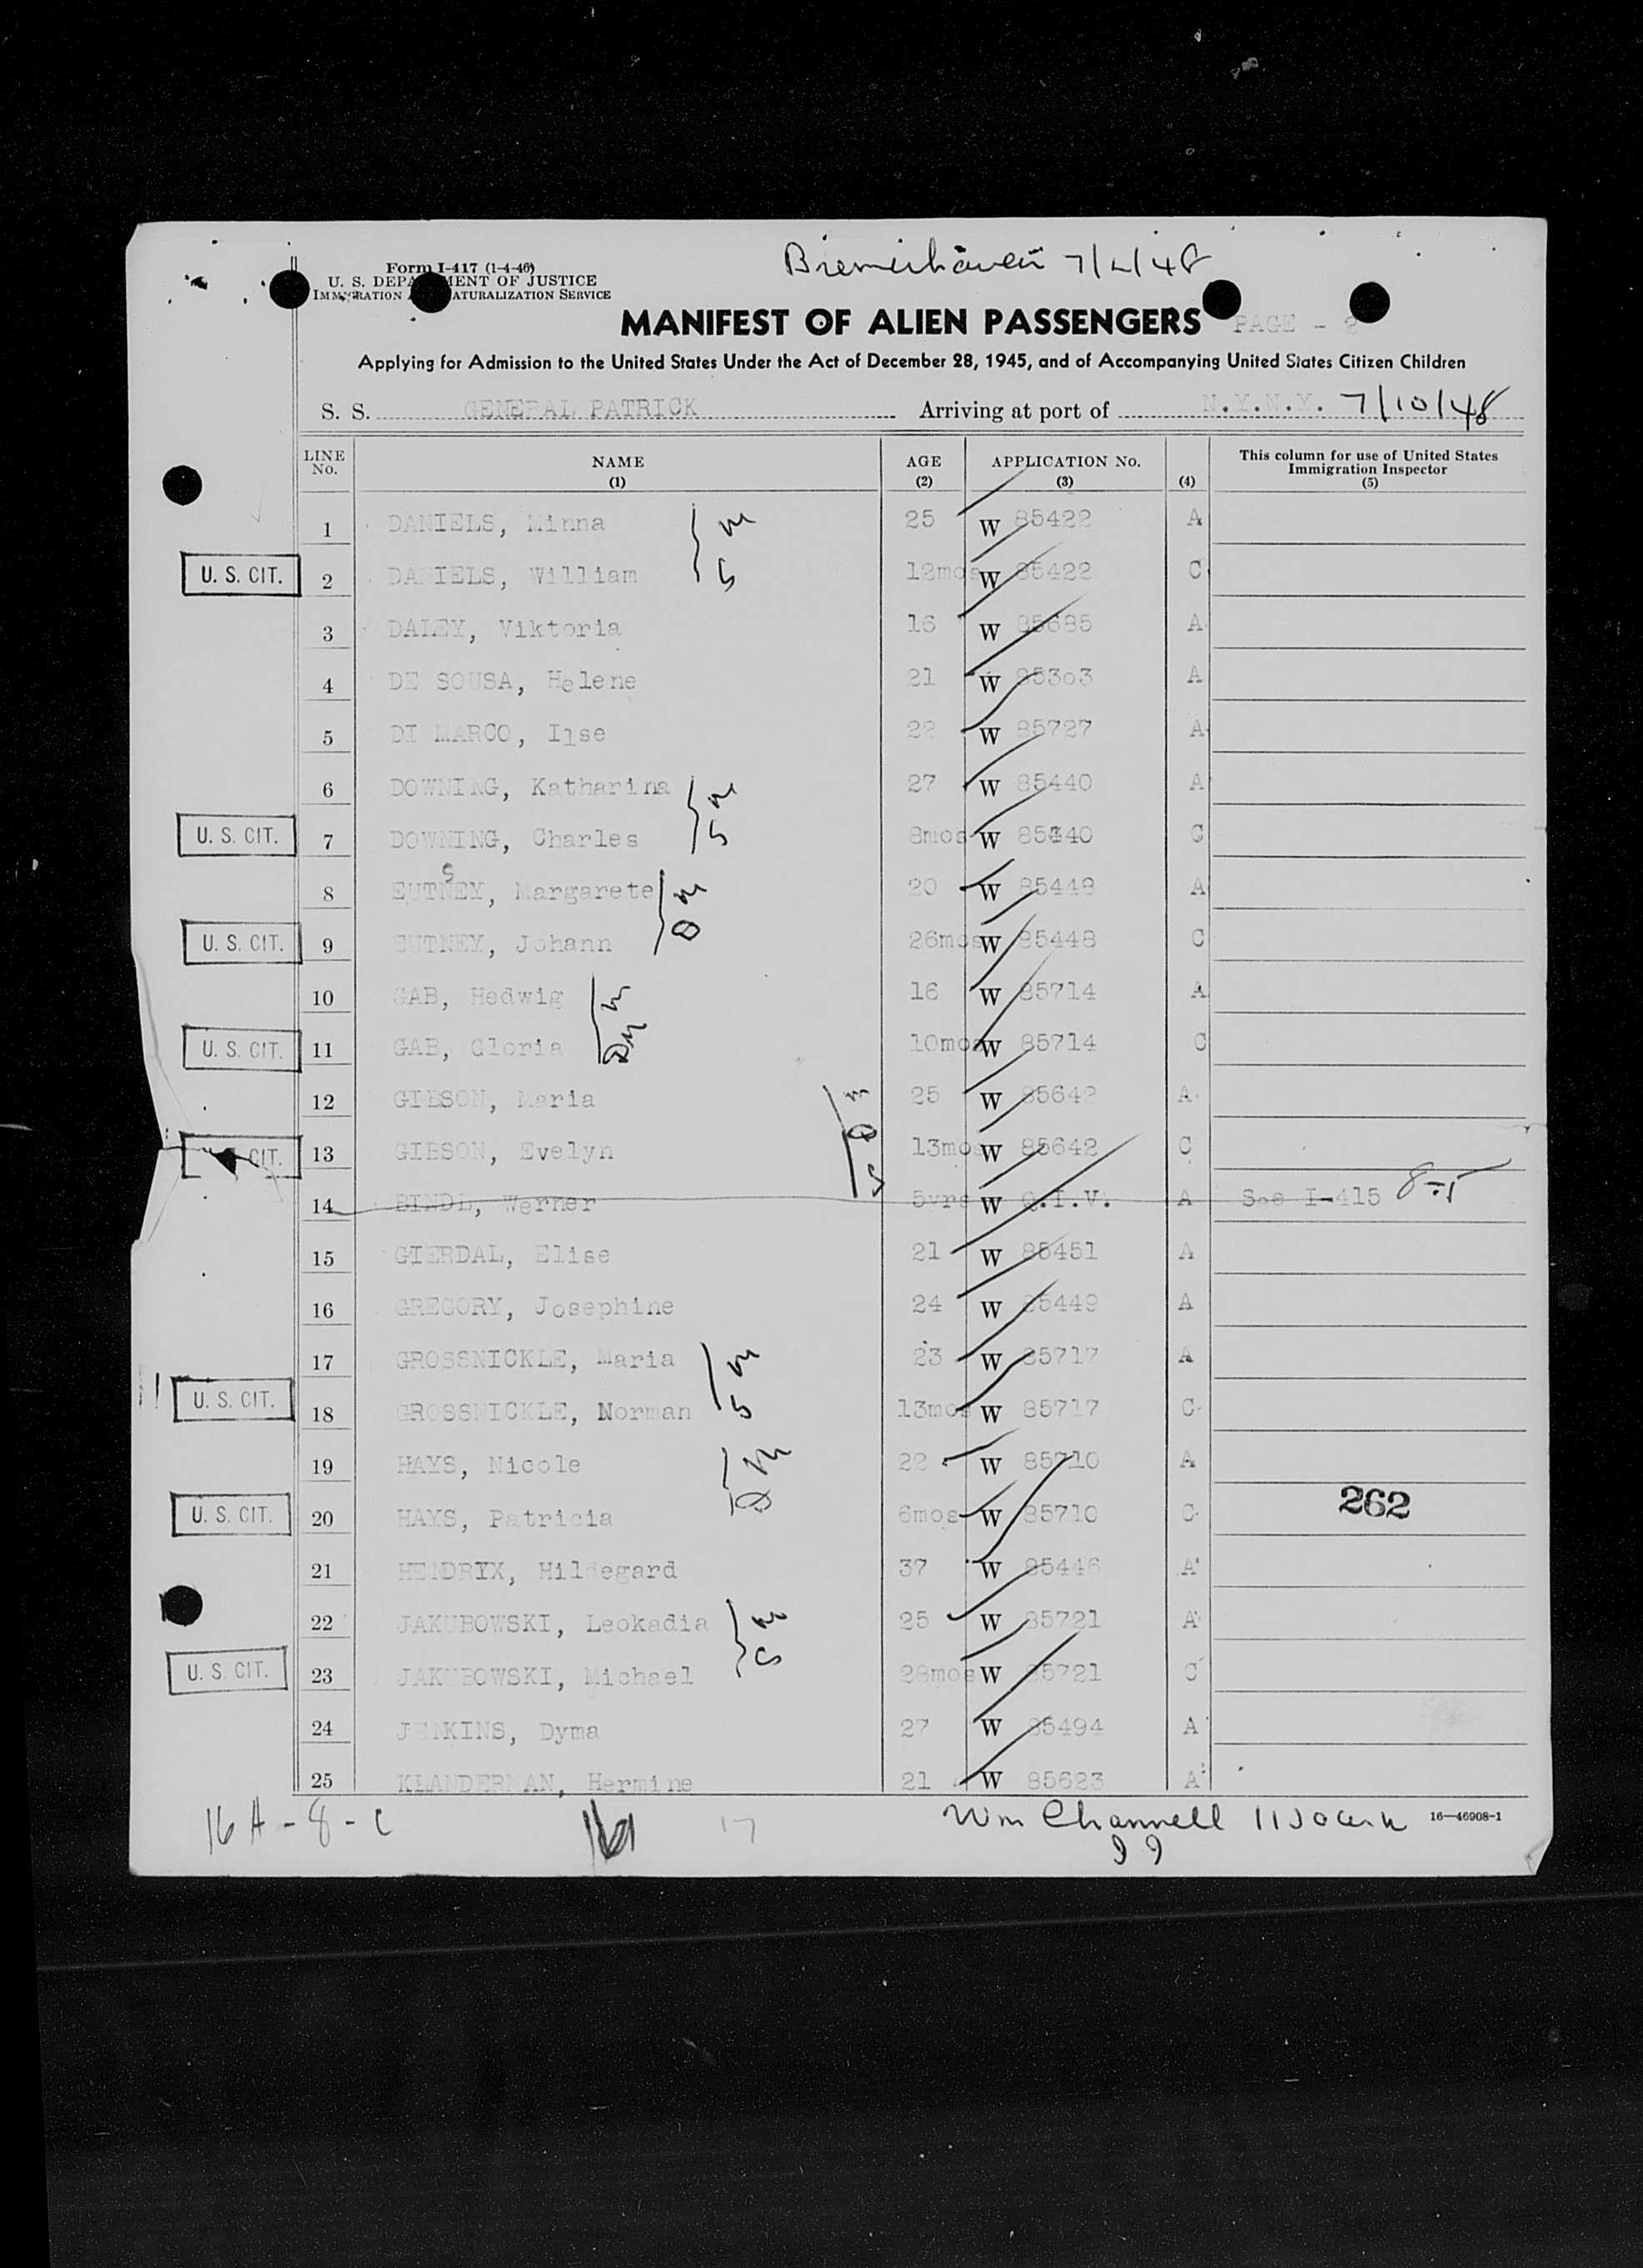 Bremerhaven 7/2/48
Form I-417 (1-4-46)
U. S. DEPARTMENT OF JUSTICE
IMMIGRATION NATURALIZATION SERVICE
MANIFEST OF ALIEN PASSENGERS PAGE - 2
Applying for Admission to the United States Under the Act of December 28, 1945, and of Accompanying United States Citizen Children
S. S. GENERAL PATRICK Arriving at port of N.Y.N.Y. 7/10/48
LINE No. NAME (1) AGE (2) APPLICATION No. (3) (4) This column for use of United States Immigration Inspector (5)
1 DANIELS, Minna 25 W 85422 A
U. S. CIT. 2 DANIELS, William 12mos W 85422 C
3 DALEY, Viktoria 16 W 85685 A
4 DE SOUSA, Helene 21 W 85303 A
5 DI MARCO, Ilse 22 W 85727 A
6 DOWNING, Katharina 27 W 85440 A
U. S. CIT. 7 DOWNING, Charles 8mos W 85440 C
8 EUTSNEY, Margarete 20 W 85448 A
U. S. CIT. 9 EUTNEY, Johann 26mos W 85448 C
10 GAB, Hedwig 16 W 85714 A
U. S. CIT. 11 GAB, Gloria 10mos W 85714 C
12 GIBSON, Maria 25 W 85642 A
CIT. 13 GIBSON, Evelyn 13mos W 85642 C
14 BINDL, Werner 5yrs W Q.I.V. A See I-415
15 GIERDAL, Elise 21 W 85451 A
16 GREGORY, Josephine 24 W 85449 A
17 GROSSNICKLE, Maria 23 W 85717 A
U. S. CIT. 18 GROSSNICKLE, Norman 13mos W 85717 C
19 HAYS, Nicole 22 W 85710 A
U. S. CIT. 20 HAYS, Patricia 6mos W 85710 C 262
21 HENDRIX, Hildegard 37 W 85446 A
22 JAKUBOWSKI, Leokadia 25 W 85721 A
U. S. CIT. 23 JAKUBOWSKI, Michael 28mos W 85721 C
24 JENKINS, Dyma 27 W 85494 A
25 KLANDERMAN, Hermine 21 W 85623 A
16 A - 8 - C 16 17 Wm Channell 16—46908-1